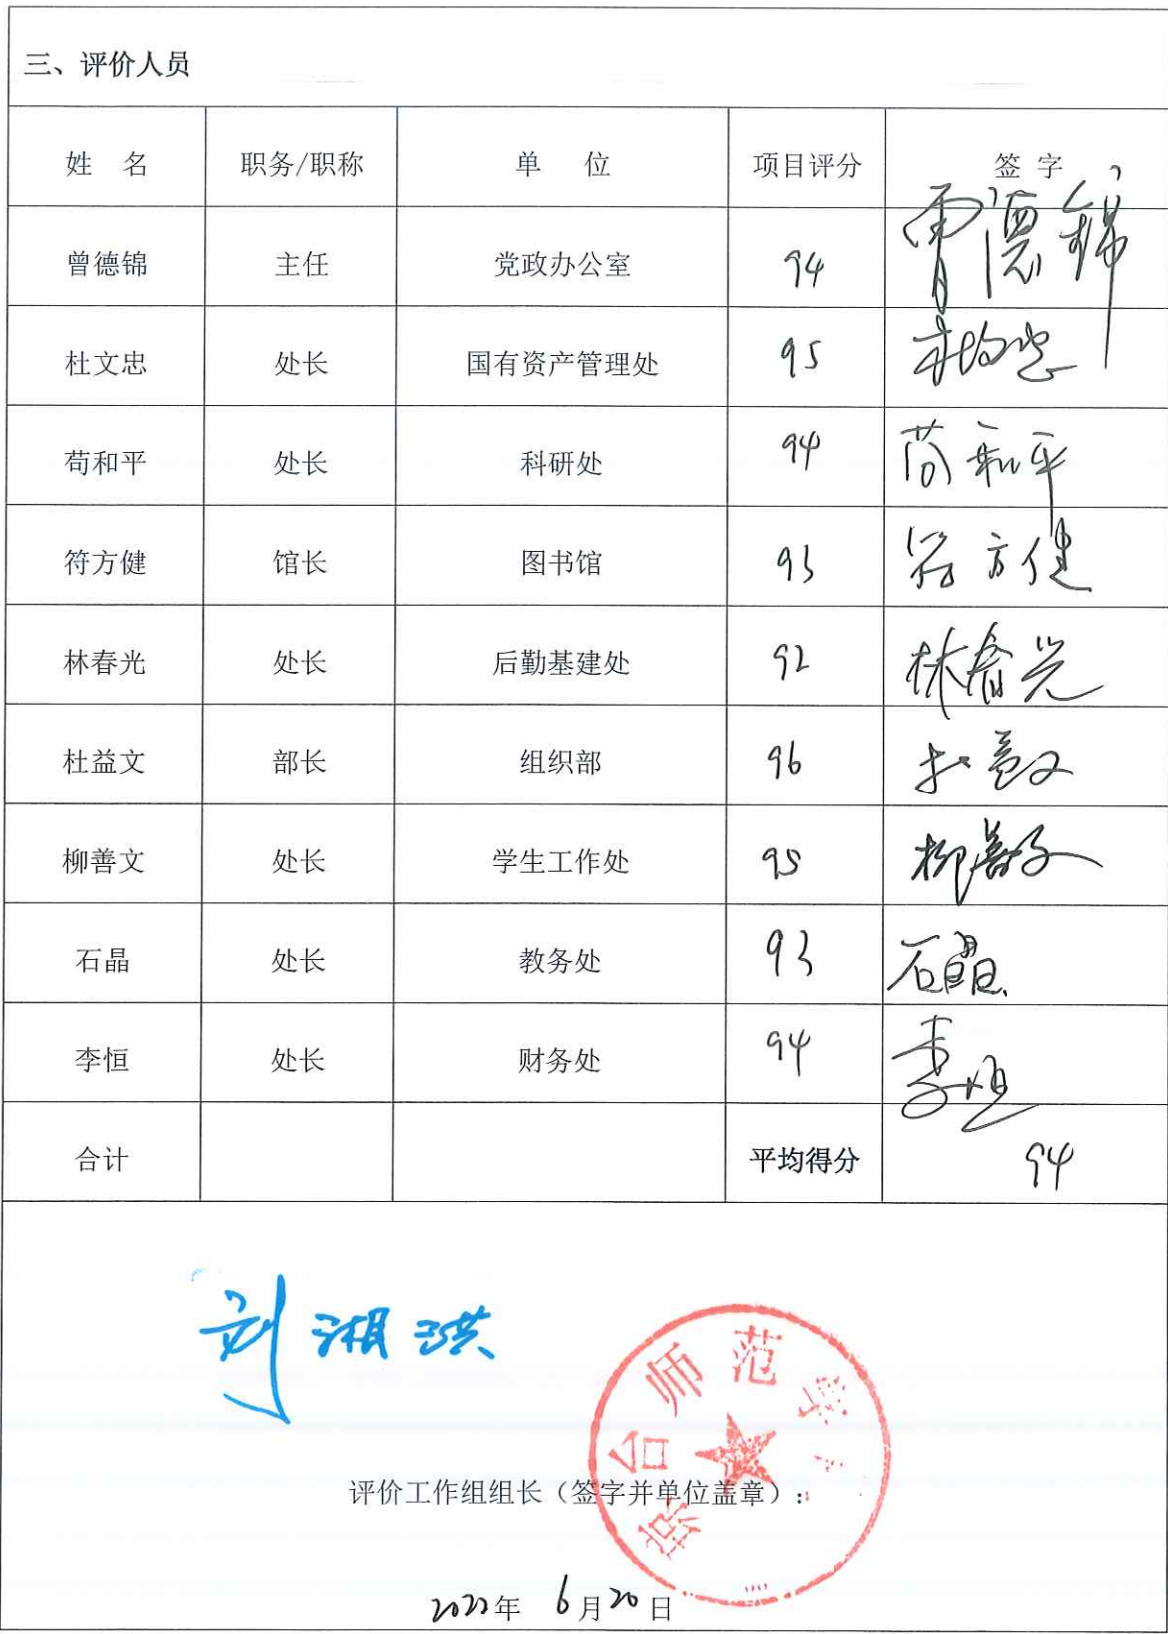 三、评价人员
姓 名 职务/职称 单 位 项目评分 签 字
曾德锦 主任 党政办公室 94 曾德锦
杜文忠 处长 国有资产管理处 95 杜文忠
苟和平 处长 科研处 94 苟和平
符方健 馆长 图书馆 93 符方健
林春光 处长 后勤基建处 92 林春光
杜益文 部长 组织部 96 杜益文
柳善文 处长 学生工作处 95 柳善文
石晶 处长 教务处 93 石晶
李恒 处长 财务处 94 李恒
合计 平均得分 94
刘湘洪
琼台师范学
评价工作组组长（签字并单位盖章）：
2022年 6月20日